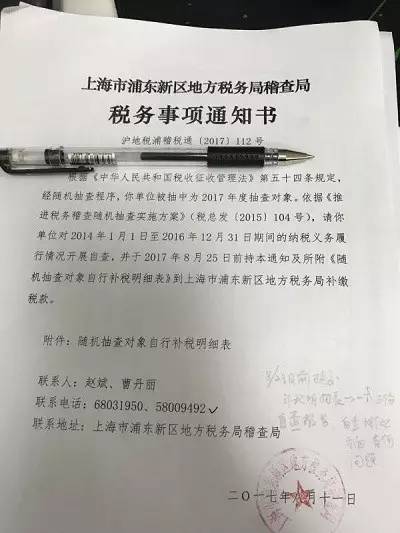 上海市浦东新区地方税务局稽查局
税务事项通知书
沪地税浦稽税通〔2017〕112号
根据《中华人民共和国税收征收管理法》第五十四条规定，
经随机抽查程序，你单位被抽中为2017年度抽查对象。依据《推
进税务稽查随机抽查实施方案》（税总发〔2015〕104号），请你
单位对2014年1月1日至2016年12月31日期间的纳税义务履
行情况开展自查，并于2017年8月25日前持本通知及所附《随
机抽查对象自行补税明细表》到上海市浦东新区地方税务局补缴
税款。
附件：随机抽查对象自行补税明细表
联系人：赵斌、曹丹丽
联系电话：68031950、58009492
联系地址：上海市浦东新区地方税务局稽查局
自查报告
问题
二〇一七年八月十一日